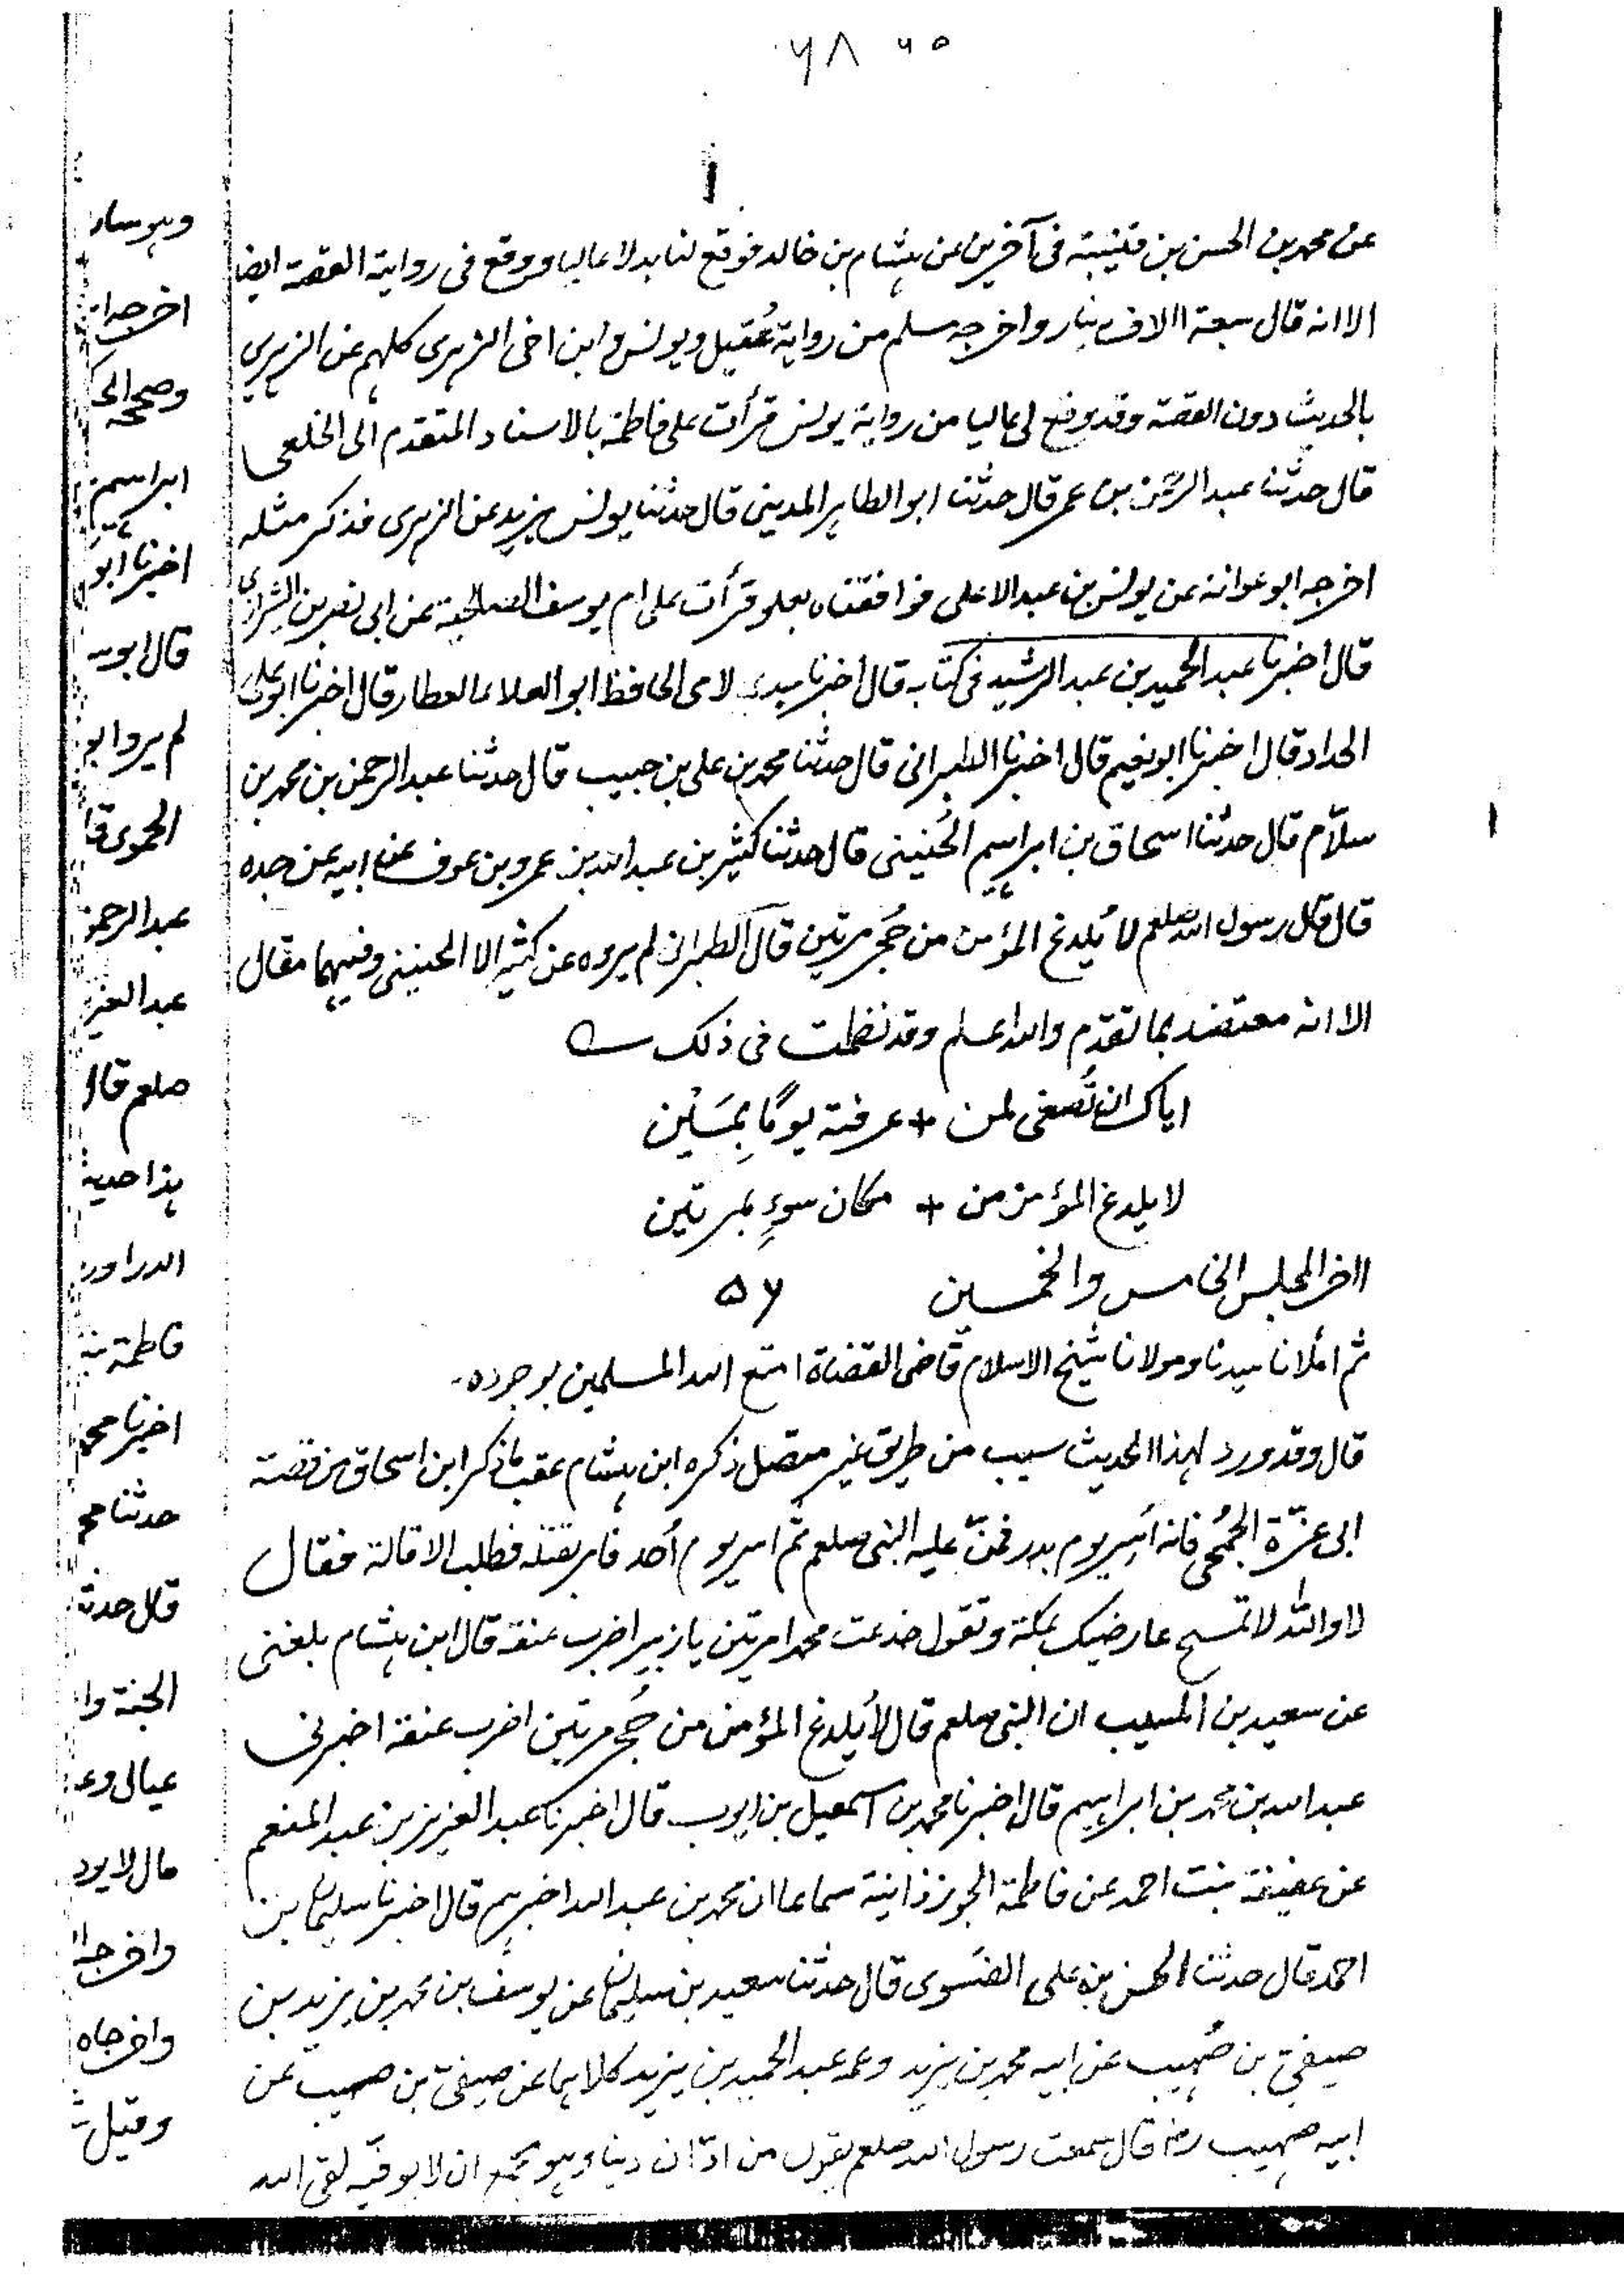 ٦٨
عن محمد بن الحسن بن قتيبة فى آخرين عن هشام بن خالد فوقع لنا بدلا عاليا ووقع فى رواية القصة ايضا
الا انه قال سبعة الاف دينار واخرجه مسلم من رواية عُقيل ويونس وابن اخى الزهرى كلهم عن الزهرى
بالحديث دون القصة وقد وقع لى عاليا من رواية يونس قرأت على فاطمة بالاسناد المتقدم الى الخلعى
قال حدثنا عبد الرحمن بن عمر قال حدثنا ابو الطاهر المدينى قال حدثنا يونس يزيد عن الزهرى فذكر مثله
اخرجه ابو عوانة عن يونس بن عبد الاعلى فوافقناه بعلو قرأت على ام يوسف الصالحية عن ابى نصر بن الشيرازى
قال اخبرنا عبد الحميد بن عبد الرشيد فى كتابه قال اخبرنا جدى لامى الحافظ ابو العلاء العطار قال اخبرنا ابو على
الحداد قال اخبرنا ابو نعيم قال اخبرنا الطبرانى قال حدثنا محمد بن على بن حبيب قال حدثنا عبد الرحمن بن محمد بن
سلّام قال حدثنا اسحاق بن ابراهيم الحُنينى قال حدثنا كثير بن عبد الله بن عمرو بن عوف عن ابيه عن جده
قال قال رسول الله صلعم لا يُلدغ المؤمن من جُحر مرتين قال الطبرانى لم يروه عن كثير الا الحنينى وفيهما مقال
الا انه معتضد بما تقدم والله اعلم وقد نظمت فى ذلك
اياك ان تُصغى لمن + عرفته يومًا بِمَيْن
لا يلدغ المؤمن من + مكان سوءٍ مرتين
اخر المجلس الخامس والخمسين ٥٦
ثم أملانا سيدنا ومولانا شيخ الاسلام قاضى القضاة امتع الله المسلمين بوجوده
قال وقد ورد لهذا الحديث سبب من طريق غير متصل ذكره ابن هشام عقب ما ذكر ابن اسحاق من قصة
ابى عزّة الجُمَحى فانه أسِر يوم بدر فمنّ عليه النبى صلعم ثم اسر يوم اُحد فامر بقتله فطلب الاقالة فقال
لا والله لا تمسح عارضيك بمكة وتقول خدعت محمدا مرتين يا زبير اضرب عنقه قال ابن هشام بلغنى
عن سعيد بن المسيب ان النبى صلعم قال لا يُلدغ المؤمن من جُحر مرتين اضرب عنقه اخبرنى
عبد الله بن محمد بن ابراهيم قال اخبرنا محمد بن اسمعيل بن ايوب قال اخبرنا عبد العزيز بن عبد المنعم
عن عفيفة بنت احمد عن فاطمة الجوزذانية سماعا ان محمد بن عبد الله اخبرهم قال اخبرنا سليمان بن
احمد قال حدثنا الحسن بن على الفَسَوى قال حدثنا سعيد بن سليمان عن يوسف بن محمد بن يزيد بن
صيفى بن صُهيب عن ابيه محمد بن يزيد وعمه عبد الحميد بن يزيد كلاهما عن صيفى بن صهيب عن
ابيه صهيب رض قال سمعت رسول الله صلعم يقول من ادّان دينا وهو مجمع ان لا يوفيه لقى الله
اخرجه
وصححه الحا
ابراهيم
اخبرنا ابو
قال ابو
لم يروا بو
الحموى قا
عبد الرحمن
عبد العزيز
صلعم قال
هذا حديث
الدراور
فاطمة
اخبرنا محمد
حدثنا مح
قال حدثنا
الجنة وا
عيالى وع
مال لا يود
واخرجا
واخرجاه
وقيل